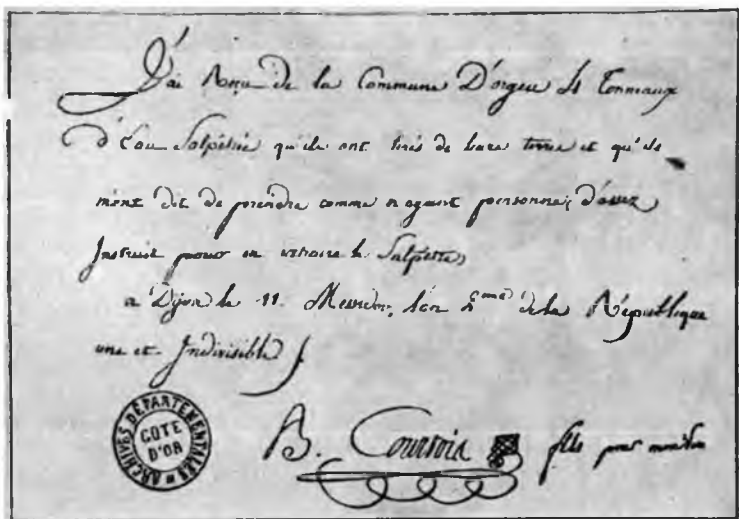 J'ai Reçu de la Commune D'orgeu 4 Tonneaux
d'Eau Salpêtrée qu'ils ont tirés de leurs terres et qu'ils
m'ont dit de prendre comme n'ayant personnes d'assez
Instruit pour en extraire le Salpêtre
a Dijon le 11 Messidor, l'an 2eme de la République
une et Indivisible
B. Courtois fils pour mon
ARCHIVES DÉPARTEMENTALES
COTE
D'OR